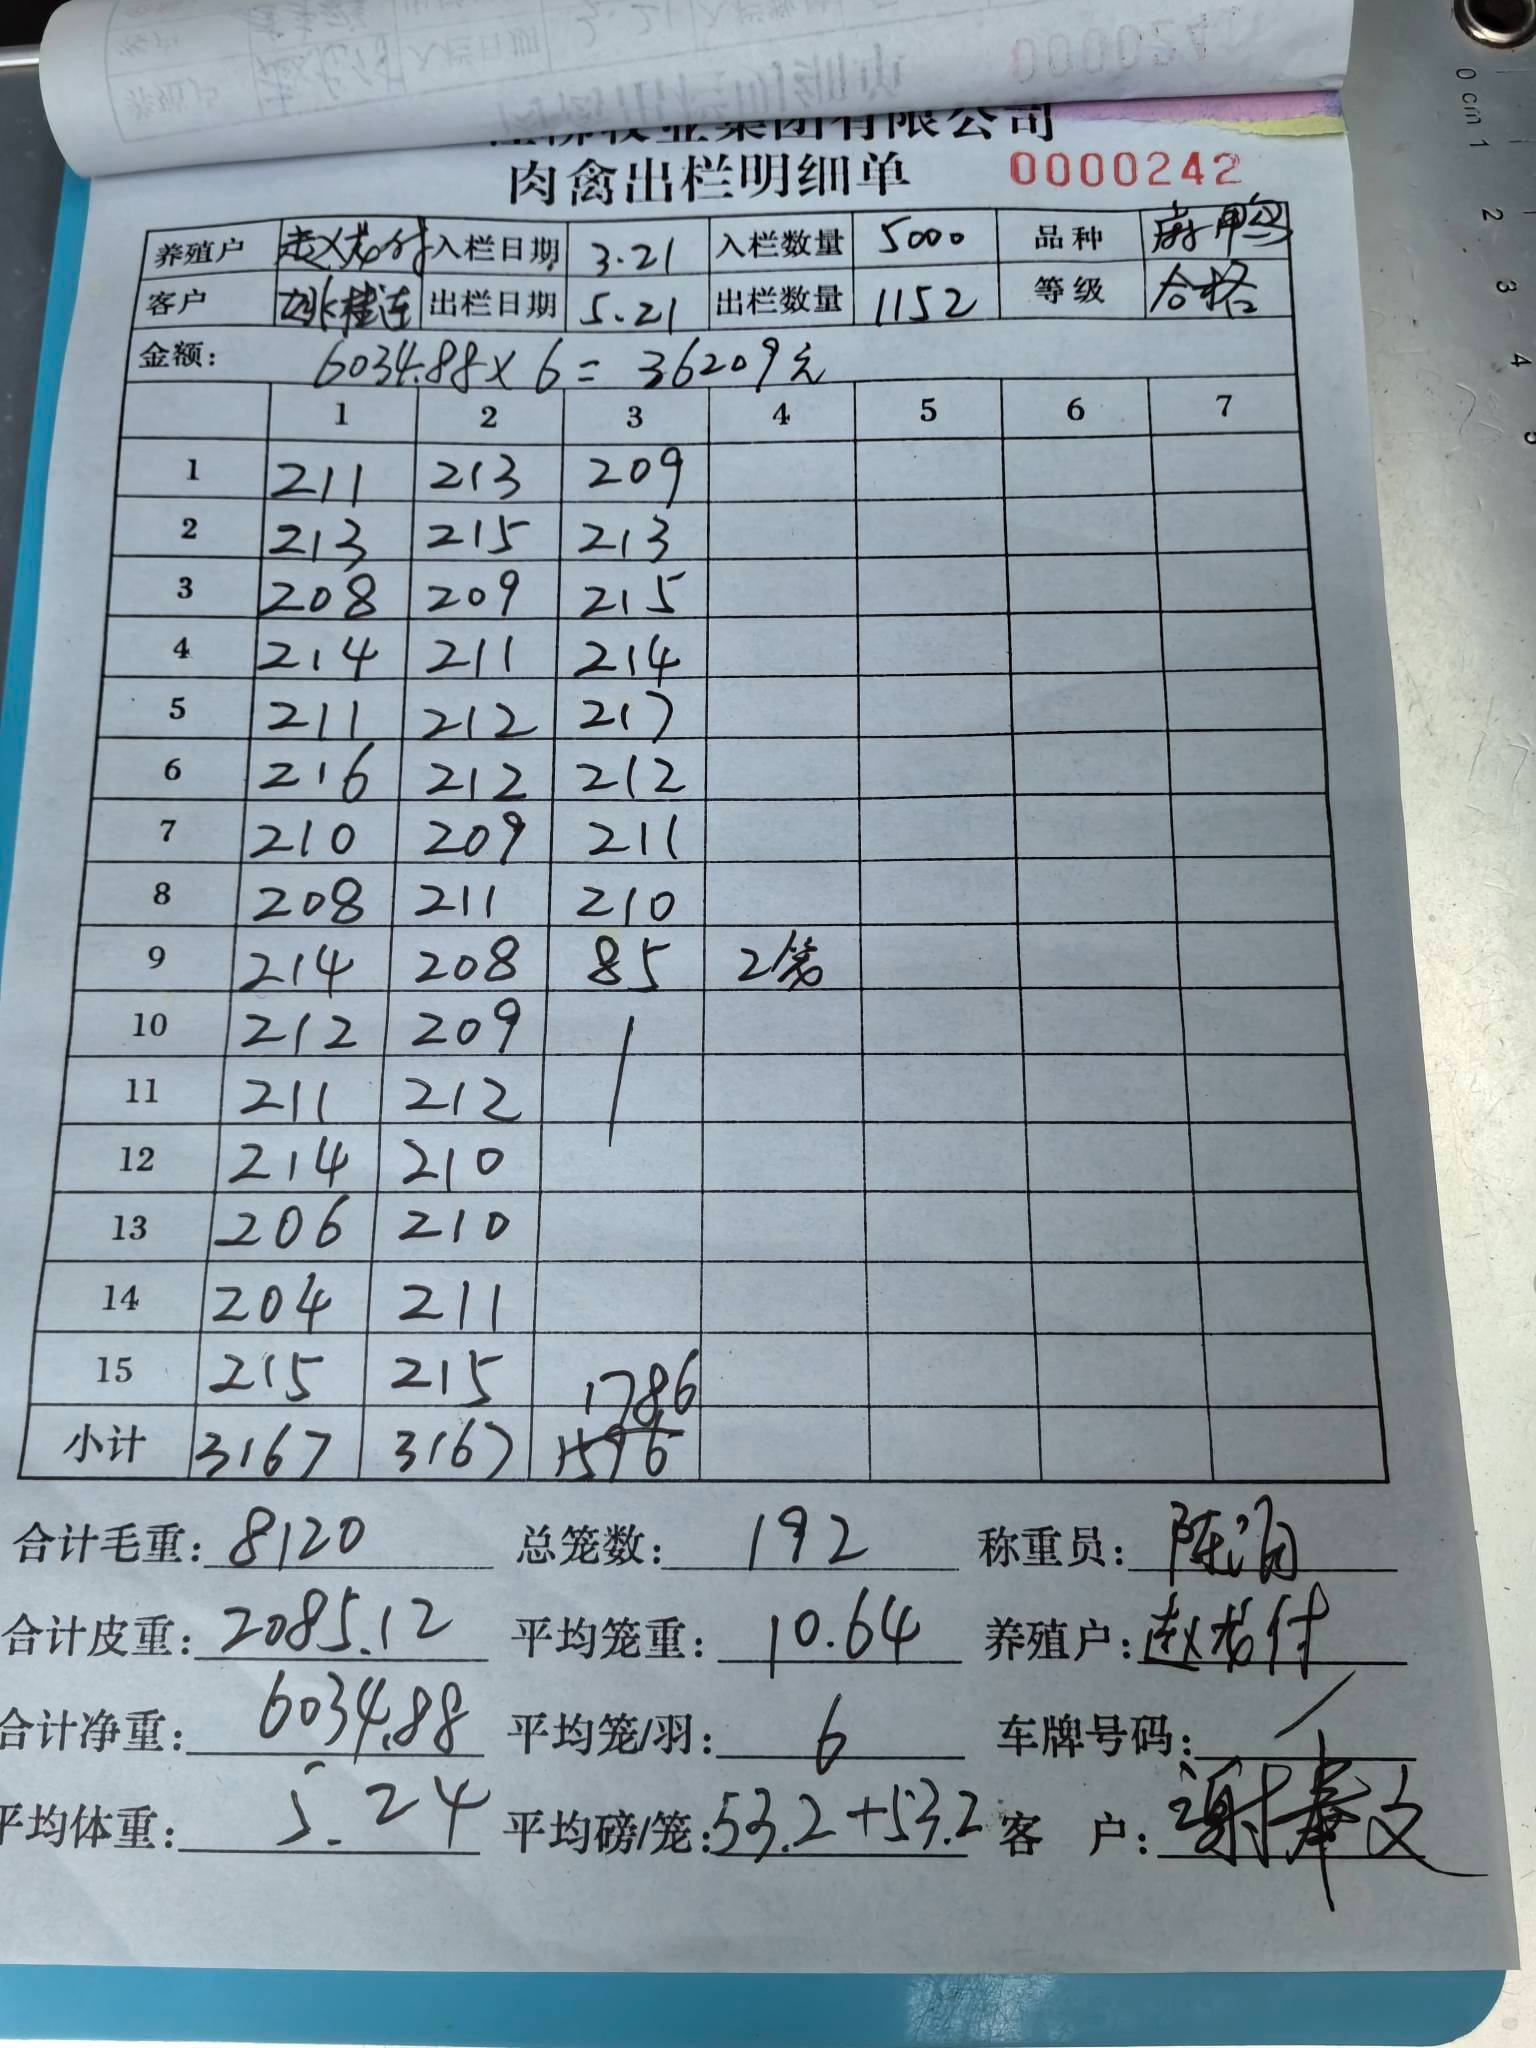 牧业集团有限公司
肉禽出栏明细单 0000242
养殖户 赵龙付 入栏日期 3.21 入栏数量 5000 品种 麻鸭
客户 桂连 出栏日期 5.21 出栏数量 1152 等级 合格
金额: 6034.88×6=36209元
1 2 3 4 5 6 7
1 211 213 209
2 213 215 213
3 208 209 215
4 214 211 214
5 211 212 217
6 216 212 212
7 210 209 211
8 208 211 210
9 214 208 85 2笼
10 212 209
11 211 212
12 214 210
13 206 210
14 204 211
15 215 215 1786
小计 3167 3167 1596
合计毛重: 8120 总笼数: 192 称重员: 陈
合计皮重: 2085.12 平均笼重: 10.64 养殖户: 赵龙付
合计净重: 6034.88 平均笼/羽: 6 车牌号码: /
平均体重: 5.24 平均磅/笼: 53.2+53.2 客 户: 谢奉文
0 cm 1 2 3 4 5